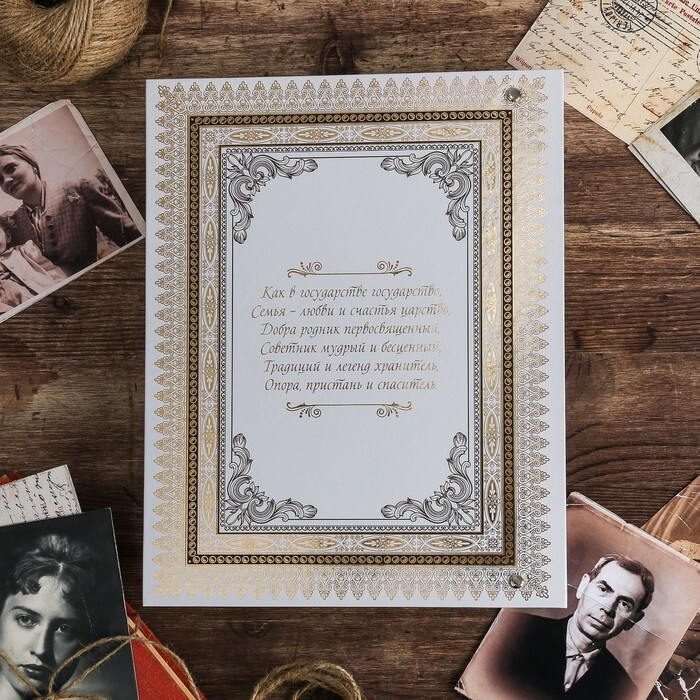 Как в государстве государство,
Семья – любви и счастья царство,
Добра родник первосвященный,
Советник мудрый и бесценный,
Традиций и легенд хранитель,
Опора, пристань и спаситель.